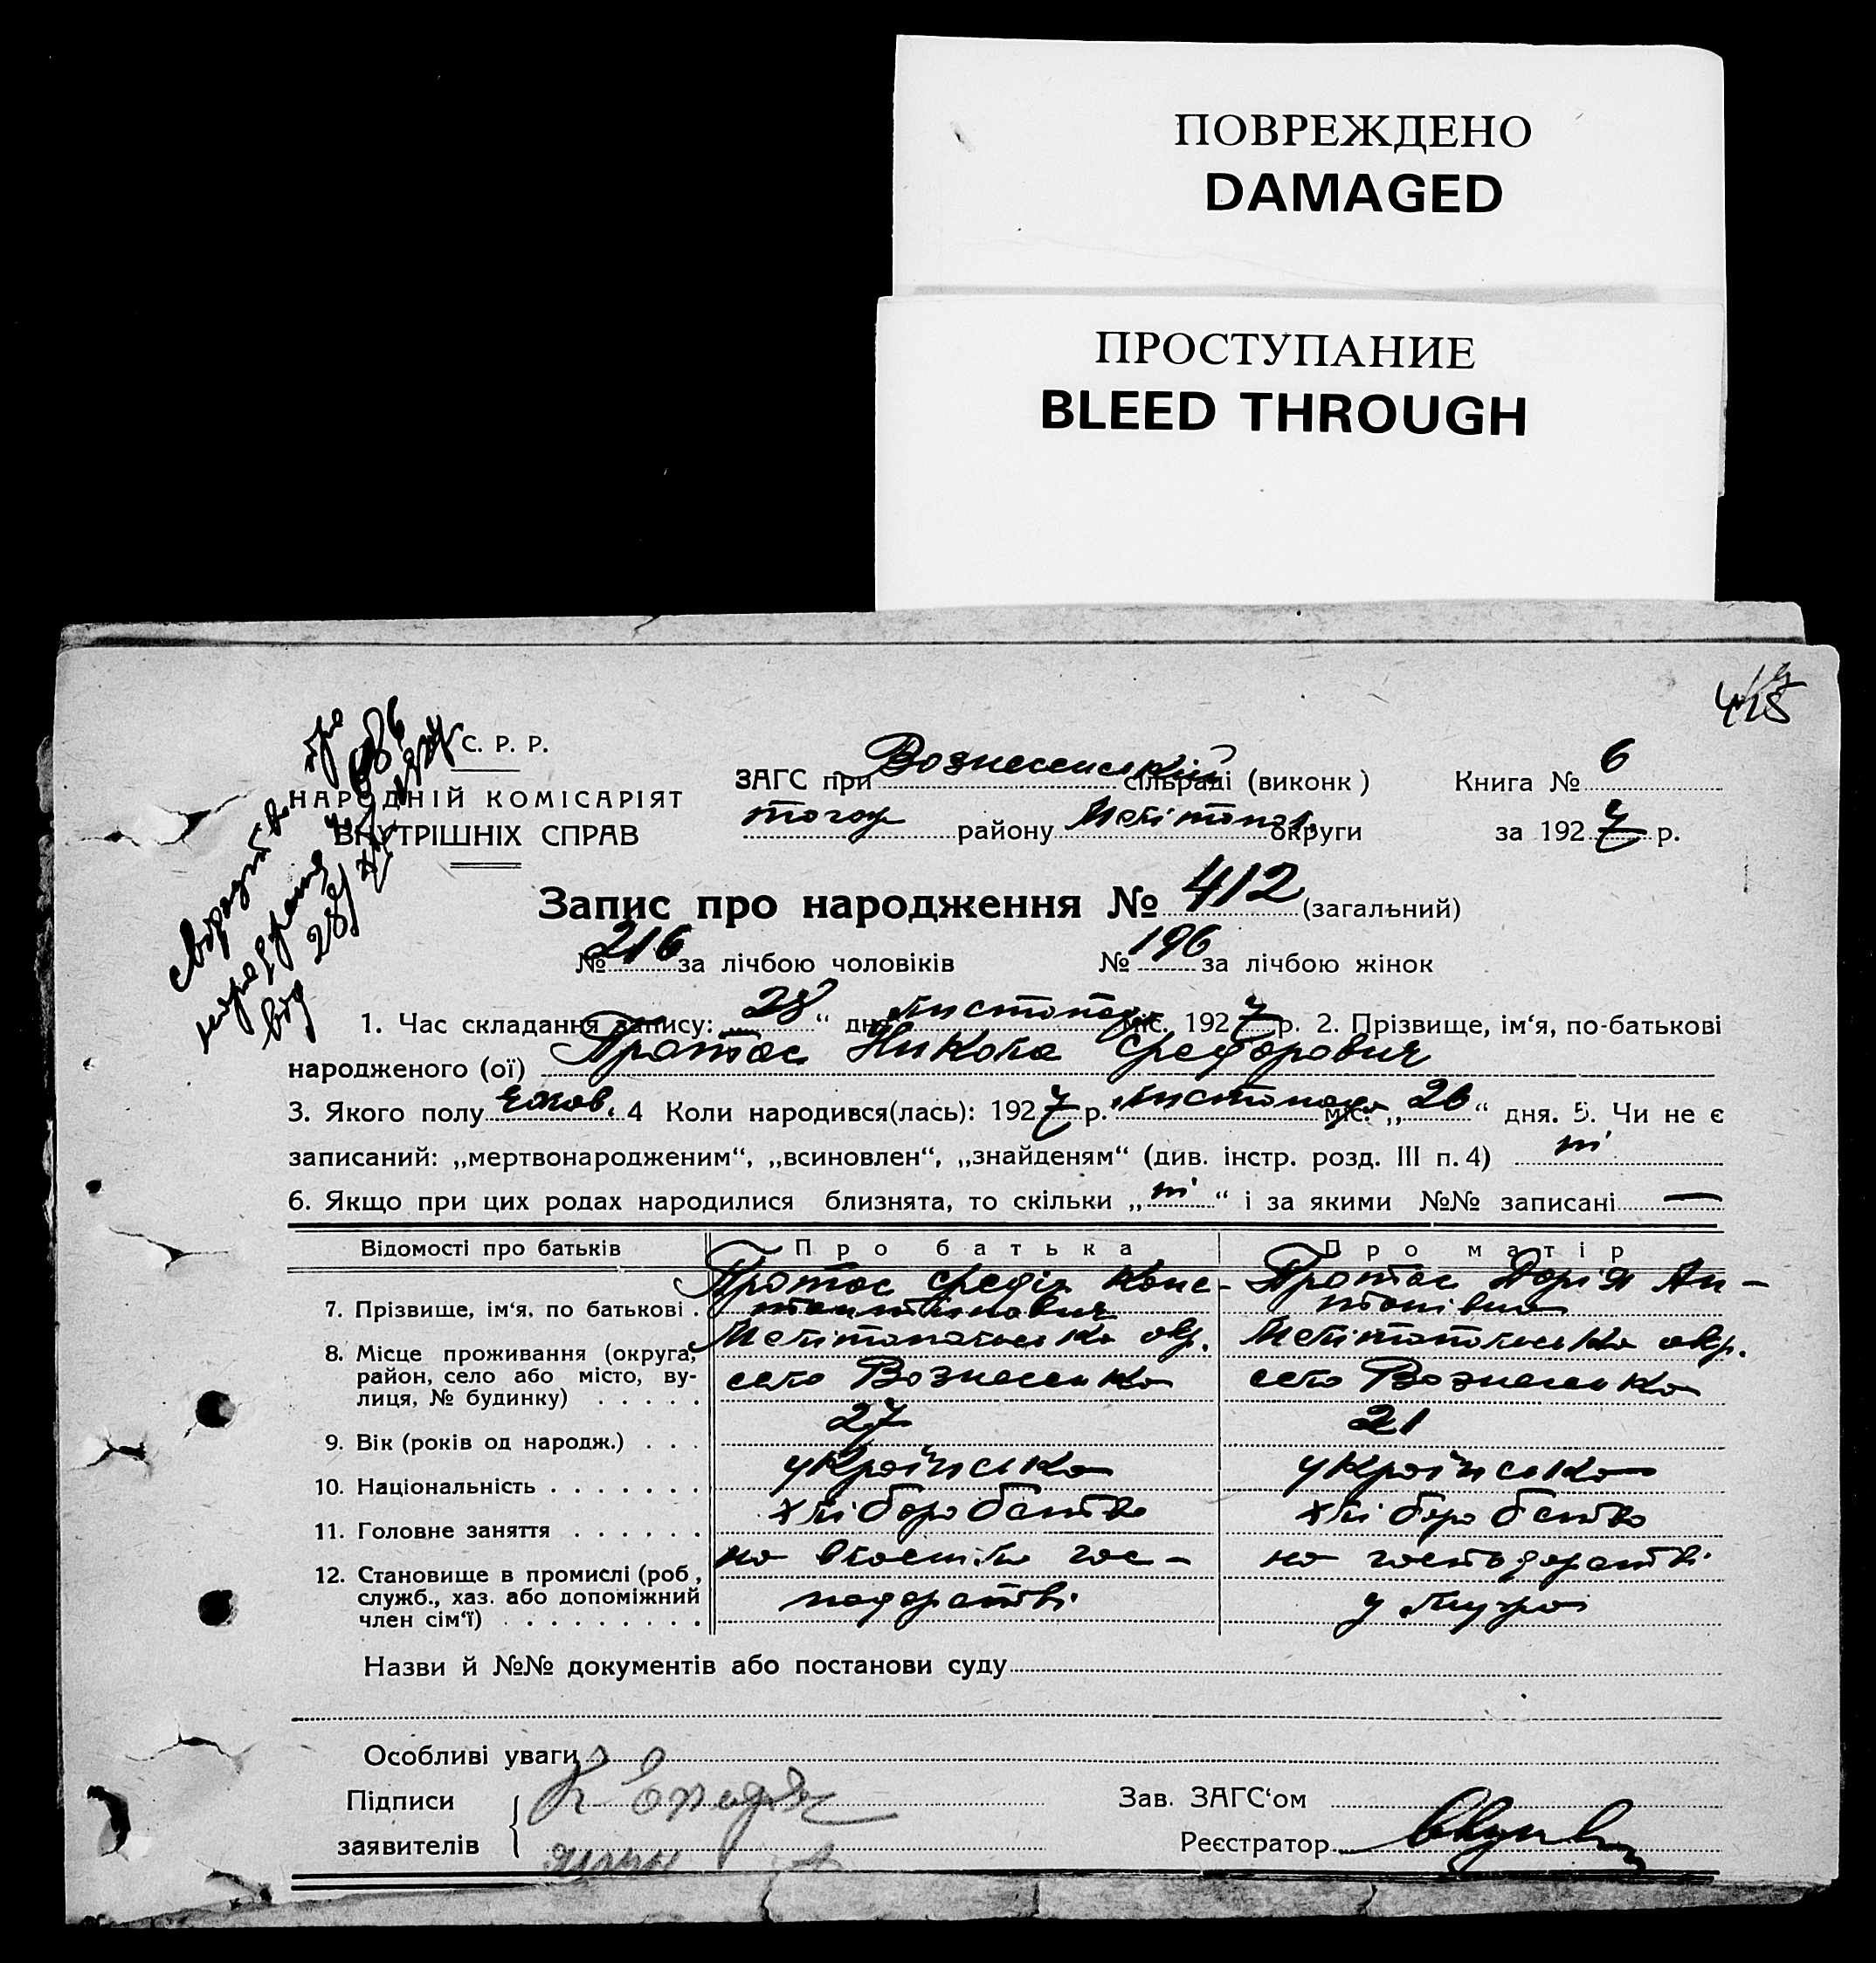 ПОВРЕЖДЕНО
DAMAGED
ПРОСТУПАНИЕ
BLEED THROUGH
С. Р. Р.
НАРОДНІЙ КОМІСАРІЯТ
ВНУТРІШНІХ СПРАВ
ЗАГС при Вознесенській сільраді (виконк) Книга № 6
тогож району Мелітопол. округи за 1927 р.
Запис про народження № 412 (загальний)
№ 216 за лічбою чоловіків № 196 за лічбою жінок
1. Час складання запису: „28“ дня листопада міс. 1927 р. 2. Прізвище, ім‘я, по-батькові
народженого (ої) Протас Никола Федорович
3. Якого полу чолов. 4 Коли народився(лась): 1927 р. листопада міс. „26“ дня. 5. Чи не є
записаний: „мертвонародженим“, „всиновлен“, „знайденям“ (див. інстр. розд. III п. 4) ні
6. Якщо при цих родах народилися близнята, то скільки „ні“ і за якими №№ записані —
Відомості про батьків Про батька Про матір
7. Прізвище, ім‘я, по батькові . Протас Федір Конс-
тантінович
Протас Дарія Ан-
тонівна
8. Місце проживання (округа,
район, село або місто, ву-
лиця, № будинку) . . . . .
Мелітопольська окр.
село Вознесенка
Мелітопольська окр.
село Вознесенка
9. Вік (років од народж.) . . . 27 21
10. Національність . . . . . . . українська українська
11. Головне заняття . . . . . . хліборобство хліборобство
12. Становище в промислі (роб,
служб., хаз. або допоміжний
член сім‘ї) . . . . . . . . .
на власнім гос-
подарстві
на господарстві
у мужа
Назви й №№ документів або постанови суду
Особливі уваги
Підписи
заявителів
Зав. ЗАГС‘ом
Реєстратор